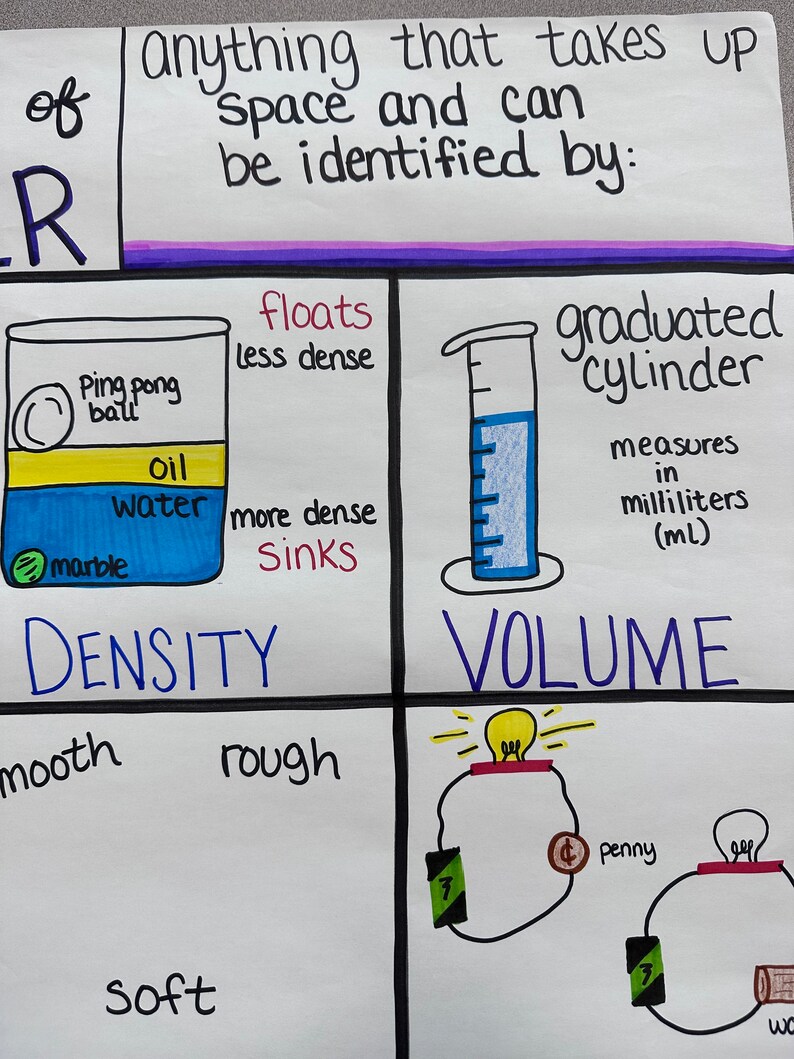 of
R
anything that takes up
space and can
be identified by:
floats
less dense
Ping pong
ball
oil
water
marble
more dense
sinks
DENSITY
graduated
cylinder
measures
in
milliliters
(ml)
VOLUME
mooth
rough
soft
¢
penny
wo